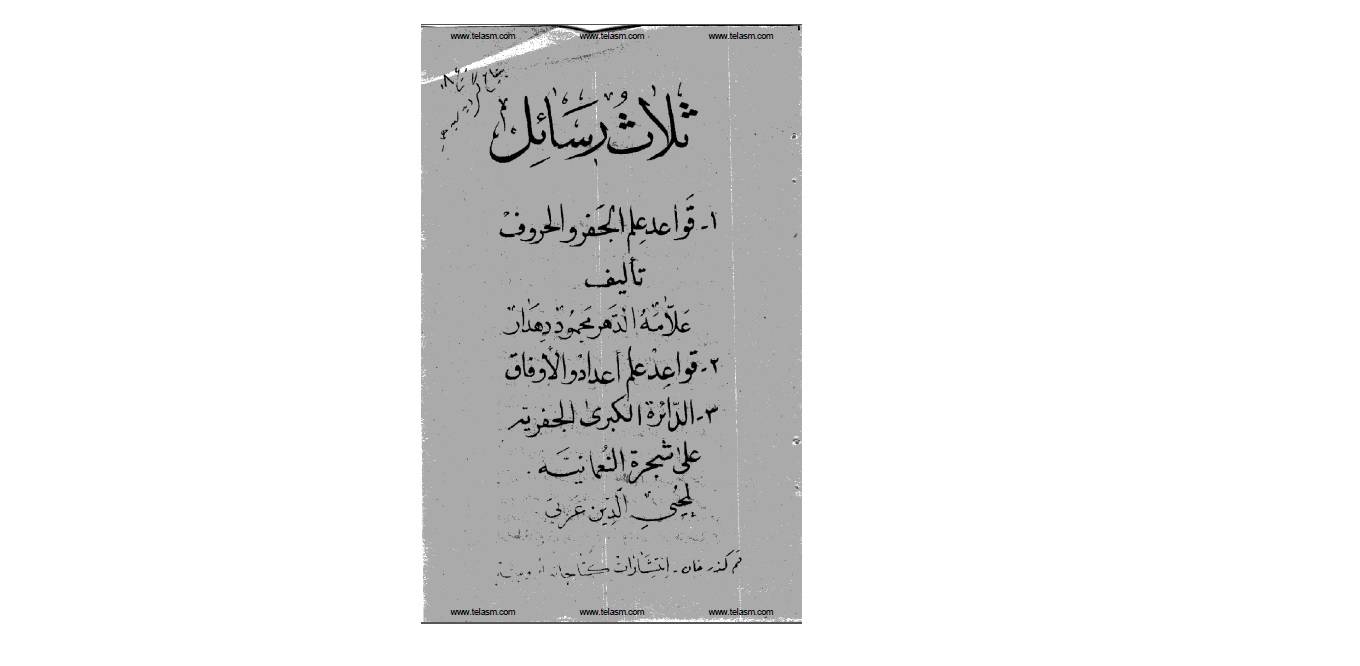 www.telasm.com www.telasm.com www.telasm.com
ثَلاثُ رَسَائِل
١- قَواعد عِلم الجَفر والحروف
تأليف
عَلاّمَهُ الدَهر محمُود دِهدَار
٢- قواعِد علم أعداد والأوفاق
٣- الدّائرة الكبرىٰ الجفريّه
علىٰ شجرة النُعمانيَّه
لمحْيِي الّدين عَربىٰ
قم گذر خان - اِنتِشَارات كتابخانه
www.telasm.com www.telasm.com www.telasm.com